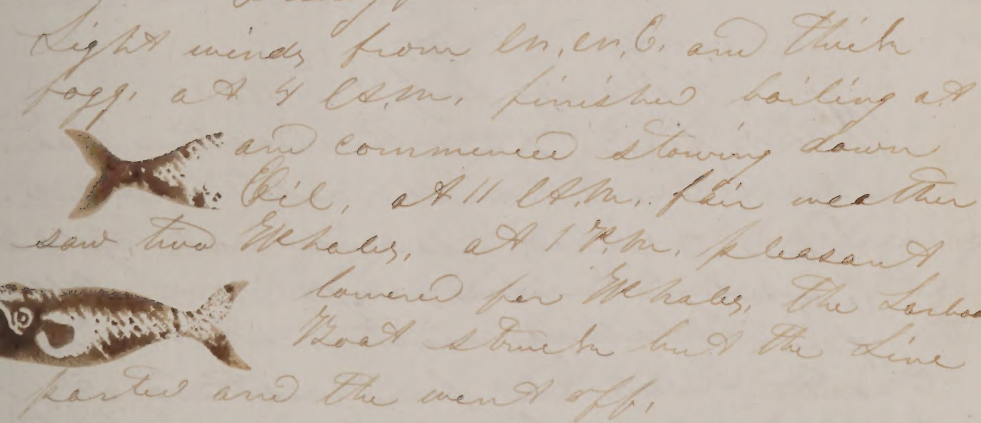 Light winds from N.N.E. and thick
fogg. at 4 A.M. finished boiling at
and commenced stowing down
Oil. at 11 A.M. fair weather
saw two Whales. at 1 P.M. pleasant
lowered for Whales, The Larboa
Boat struck but the Line
parted and the went off.